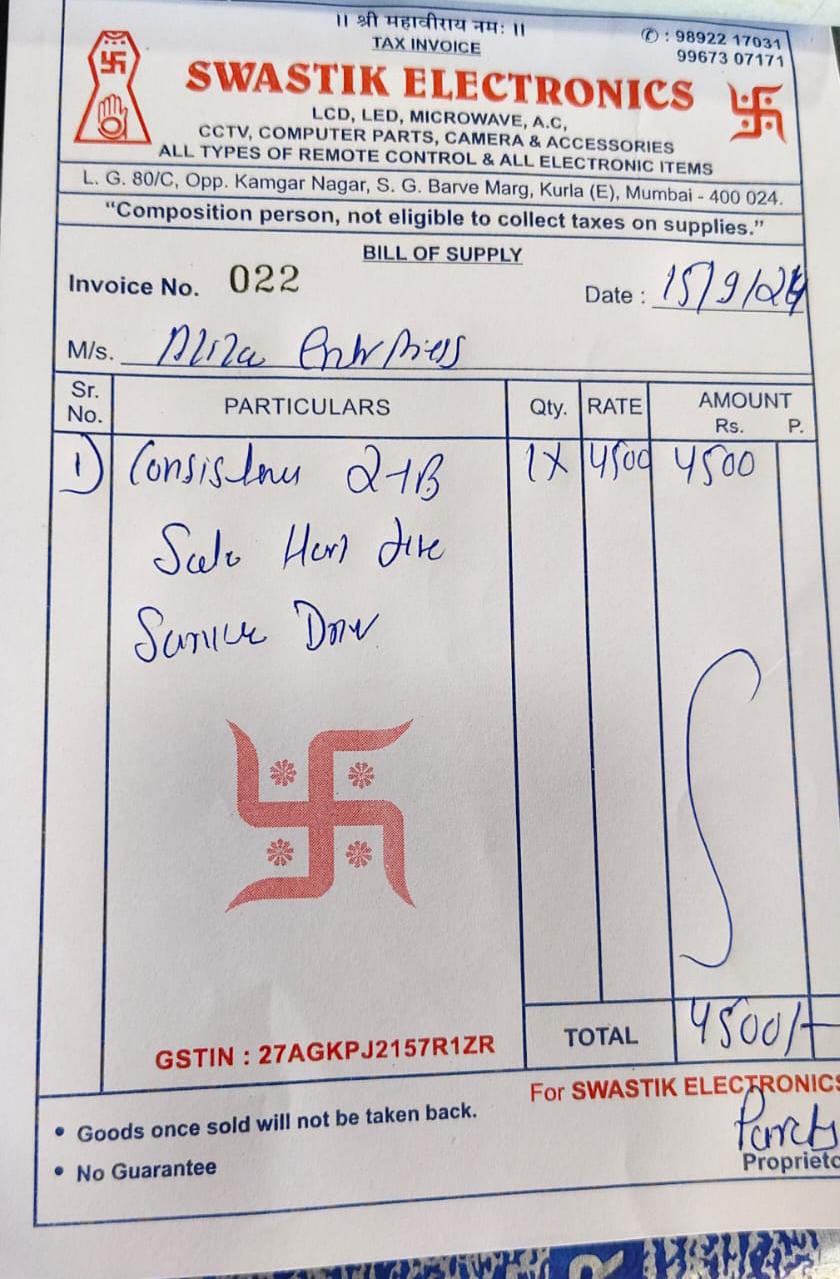 ॥ श्री महावीराय नमः ॥
TAX INVOICE
✆ : 98922 17031
99673 07171
SWASTIK ELECTRONICS
LCD, LED, MICROWAVE, A.C,
CCTV, COMPUTER PARTS, CAMERA & ACCESSORIES
ALL TYPES OF REMOTE CONTROL & ALL ELECTRONIC ITEMS
L. G. 80/C, Opp. Kamgar Nagar, S. G. Barve Marg, Kurla (E), Mumbai - 400 024.
“Composition person, not eligible to collect taxes on supplies.”
BILL OF SUPPLY
Invoice No. 022
Date : 15/9/24
M/s.
Sr. No. PARTICULARS Qty. RATE AMOUNT Rs. P.
1) 2TB 1X 4500 4500
GSTIN : 27AGKPJ2157R1ZR
TOTAL 4500/-
For SWASTIK ELECTRONICS
• Goods once sold will not be taken back.
• No Guarantee
Proprieto